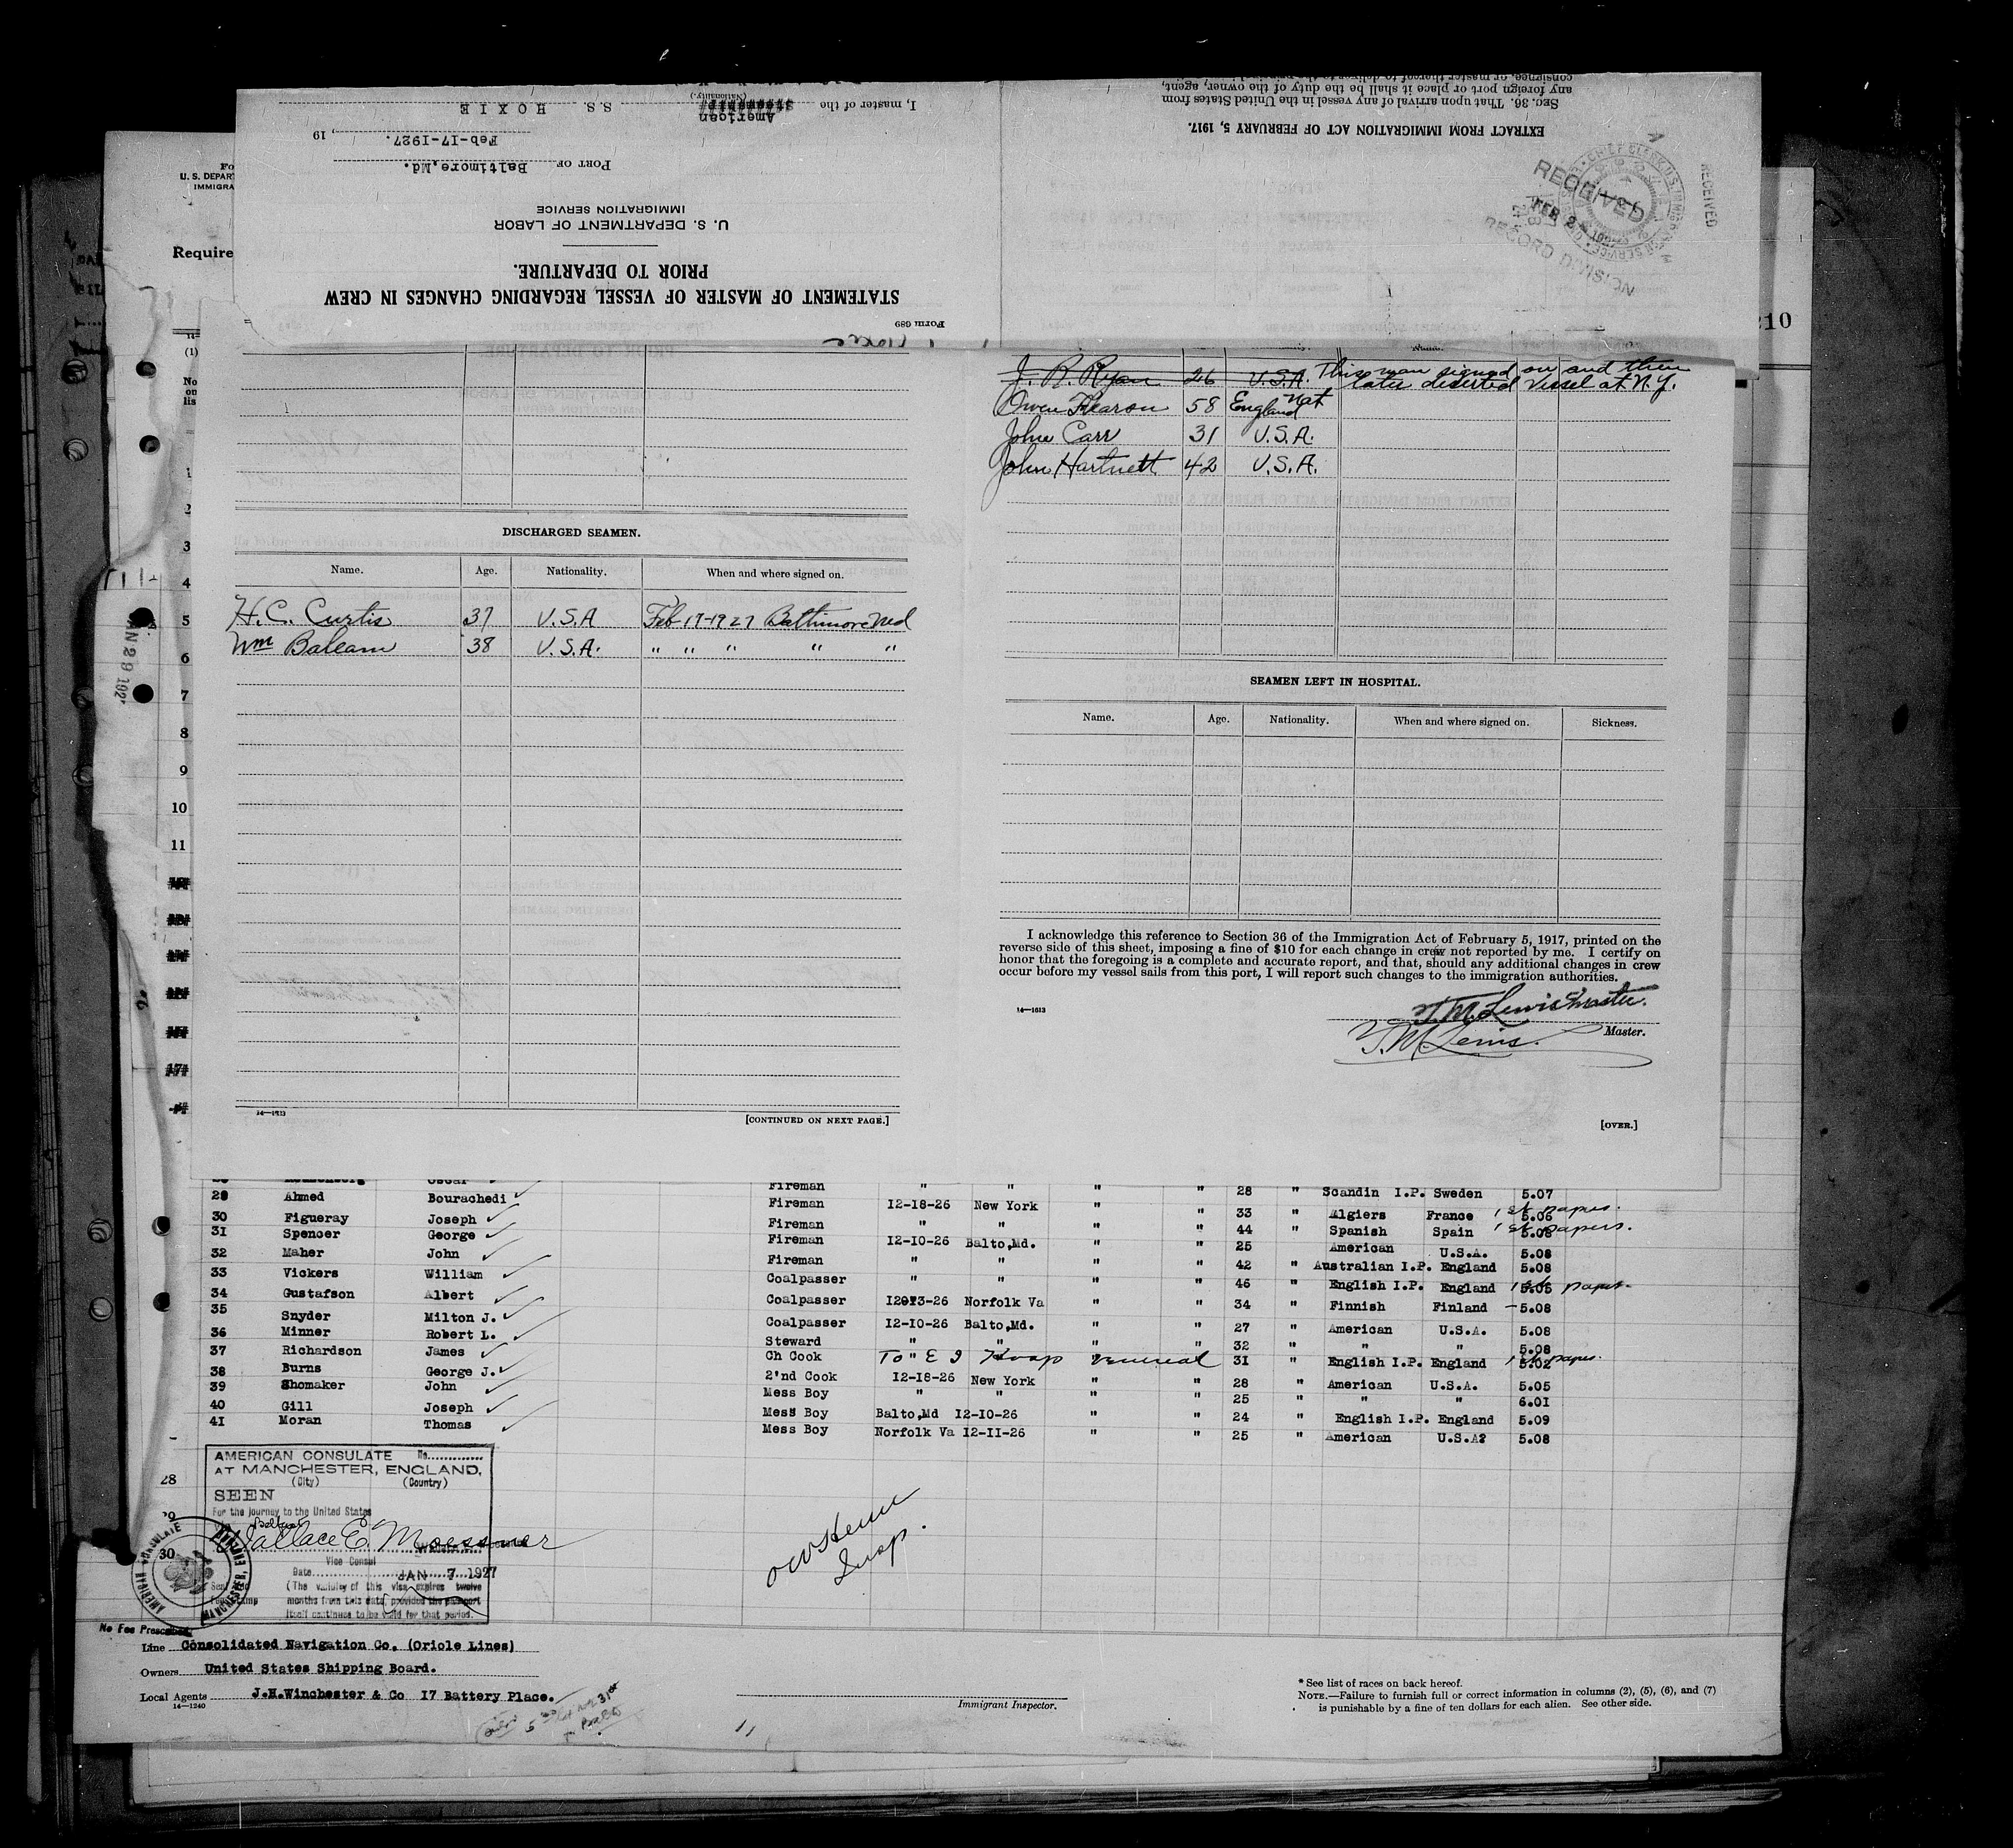 SEC. 36. That upon arrival of any vessel in the United States from
any foreign port or place it shall be the duty of the owner, agent,
consignee, or master thereof to deliver to the
EXTRACT FROM IMMIGRATION ACT OF FEBRUARY 5, 1917.
RECEIVED
FEB 2
RECORD DIVISION
RECEIVED
Form 689
STATEMENT OF MASTER OF VESSEL REGARDING CHANGES IN CREW
PRIOR TO DEPARTURE.
U. S. DEPARTMENT OF LABOR
IMMIGRATION SERVICE
PORT OF Baltimore,Md.
Feb-17-1927. , 19
American
I, master of the S.S. HOXIE
(Nationality.)
Fo
U. S. DEPART
IMMIGRA
Require
210
(1)
No
on
lis
1
2
3
4
5
6
7
8
9
10
11
J. R. Ryan 26 U.S.A. This man signed on and then
later deserted vessel at N.Y.
Owen 58 England Nat
John Carr 31 U.S.A.
John Hartnett 42 U.S.A.
DISCHARGED SEAMEN.
Name. Age. Nationality. When and where signed on.
H. C. Curtis 37 U.S.A Feb 17-1927 Baltimore Md
Wm Baleam 38 U.S.A. " " " " "
14—1613
[CONTINUED ON NEXT PAGE.]
SEAMEN LEFT IN HOSPITAL.
Name. Age. Nationality. When and where signed on. Sickness.
I acknowledge this reference to Section 36 of the Immigration Act of February 5, 1917, printed on the
reverse side of this sheet, imposing a fine of $10 for each change in crew not reported by me. I certify on
honor that the foregoing is a complete and accurate report, and that, should any additional changes in crew
occur before my vessel sails from this port, I will report such changes to the immigration authorities.
14—1613
T. M. Lewis Master.
T. M. Lewis. Master.
[OVER.]
Oscar Fireman " " " " 28 " Scandin I.P. Sweden 5.07
29 Ahmed Bourachedi Fireman 12-18-26 New York " " 33 " Algiers France 5.06 1st papers.
30 Figueray Joseph Fireman " " " " 44 " Spanish Spain 5.08 1st papers.
31 Spencer George Fireman 12-10-26 Balto,Md. " " 25 American U.S.A. 5.08
32 Maher John Fireman " " " " 42 " Australian I.P. England 5.08
33 Vickers William Coalpasser " " " " 46 " English I.P. England 5.06 1st papers.
34 Gustafson Albert Coalpasser Norfolk Va " " 34 " Finnish Finland 5.08
35 Snyder Milton J. Coalpasser 12-10-26 Balto,Md. " " 27 " American U.S.A. 5.08
36 Minner Robert L. Steward " " " " 32 " " " 5.08
37 Richardson James Ch Cook To E I Hosp venereal 31 " English I.P. England 5.02 1st papers.
38 Burns George J. 2'nd Cook 12-18-26 New York " " 28 " American U.S.A. 5.05
39 Shomaker John Mess Boy " " " " 25 " " " 6.01
40 Gill Joseph Mess Boy Balto,Md 12-10-26 " " 24 " English I.P. England 5.09
41 Moran Thomas Mess Boy Norfolk Va 12-11-26 " " 25 " American U.S.A? 5.08
28
29
30
AMERICAN CONSULATE No.
AT MANCHESTER, ENGLAND,
(City) (Country)
SEEN
For the journey to the United States
Wallace E. Moessner
Vice Consul
Date JAN 7 1927
(The validity of this visa expires twelve
months from this date, provided the passport
itself continues to be valid for that period.
AMERICAN CONSULATE MANCHESTER, ENGLAND
No Fee Prescribed.
Insp.
Line Consolidated Navigation Co. (Oriole Lines)
Owners United States Shipping Board.
Local Agents J.H.Winchester & Co 17 Battery Place.
14—1240
Immigrant Inspector.
* See list of races on back hereof.
NOTE.—Failure to furnish full or correct information in columns (2), (5), (6), and (7)
is punishable by a fine of ten dollars for each alien. See other side.